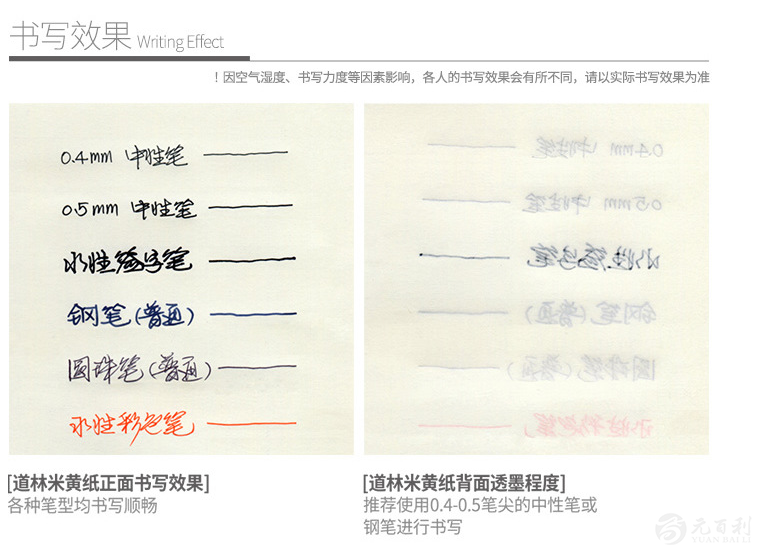 书写效果 Writing Effect
！因空气湿度、书写力度等因素影响，各人的书写效果会有所不同，请以实际书写效果为准
0.4mm 中性笔
0.5mm 中性笔
水性签字笔
钢笔(普通)
圆珠笔(普通)
水性彩色笔
0.4mm 中性笔
0.5mm 中性笔
水性签字笔
钢笔(普通)
圆珠笔(普通)
水性彩色笔
[道林米黄纸正面书写效果]
各种笔型均书写顺畅
[道林米黄纸背面透墨程度]
推荐使用0.4-0.5笔尖的中性笔或
钢笔进行书写
元百利
YUAN BAI LI